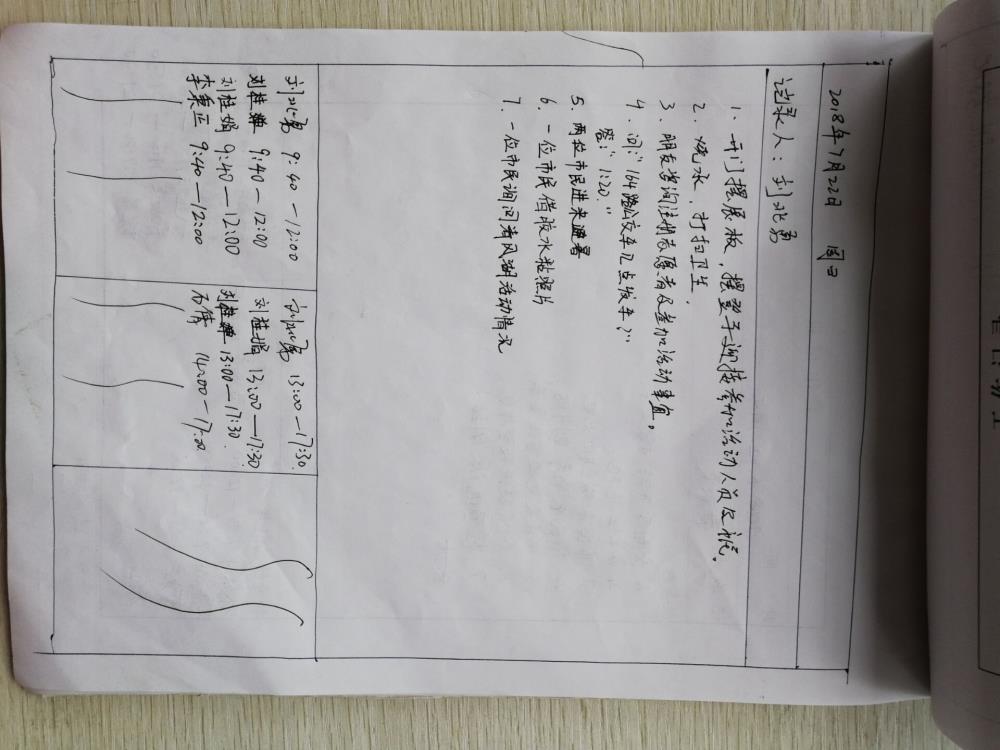 2018年7月22日 周日
记录人：刘兆勇
1. 开门摆展板，摆登子迎接参加活动人员及
2. 烧水，打扫卫生，
3. 朋友咨询注册志愿者及参加活动事宜。
4. 问：“164路公交车几点发车？”
答：“1:20.”
5. 两位市民进来避暑
6. 一位市民借胶水粘照片
7. 一位市民询问清风湖活动情况
9:40—12:00
刘桂婵 9:40—12:00
刘桂娟 9:40—12:00
李秉正 9:40—12:00
13:00—17:30.
刘桂娟 13:00—17:30
刘桂婵 13:00—17:30.
石倩 14:00—17:00